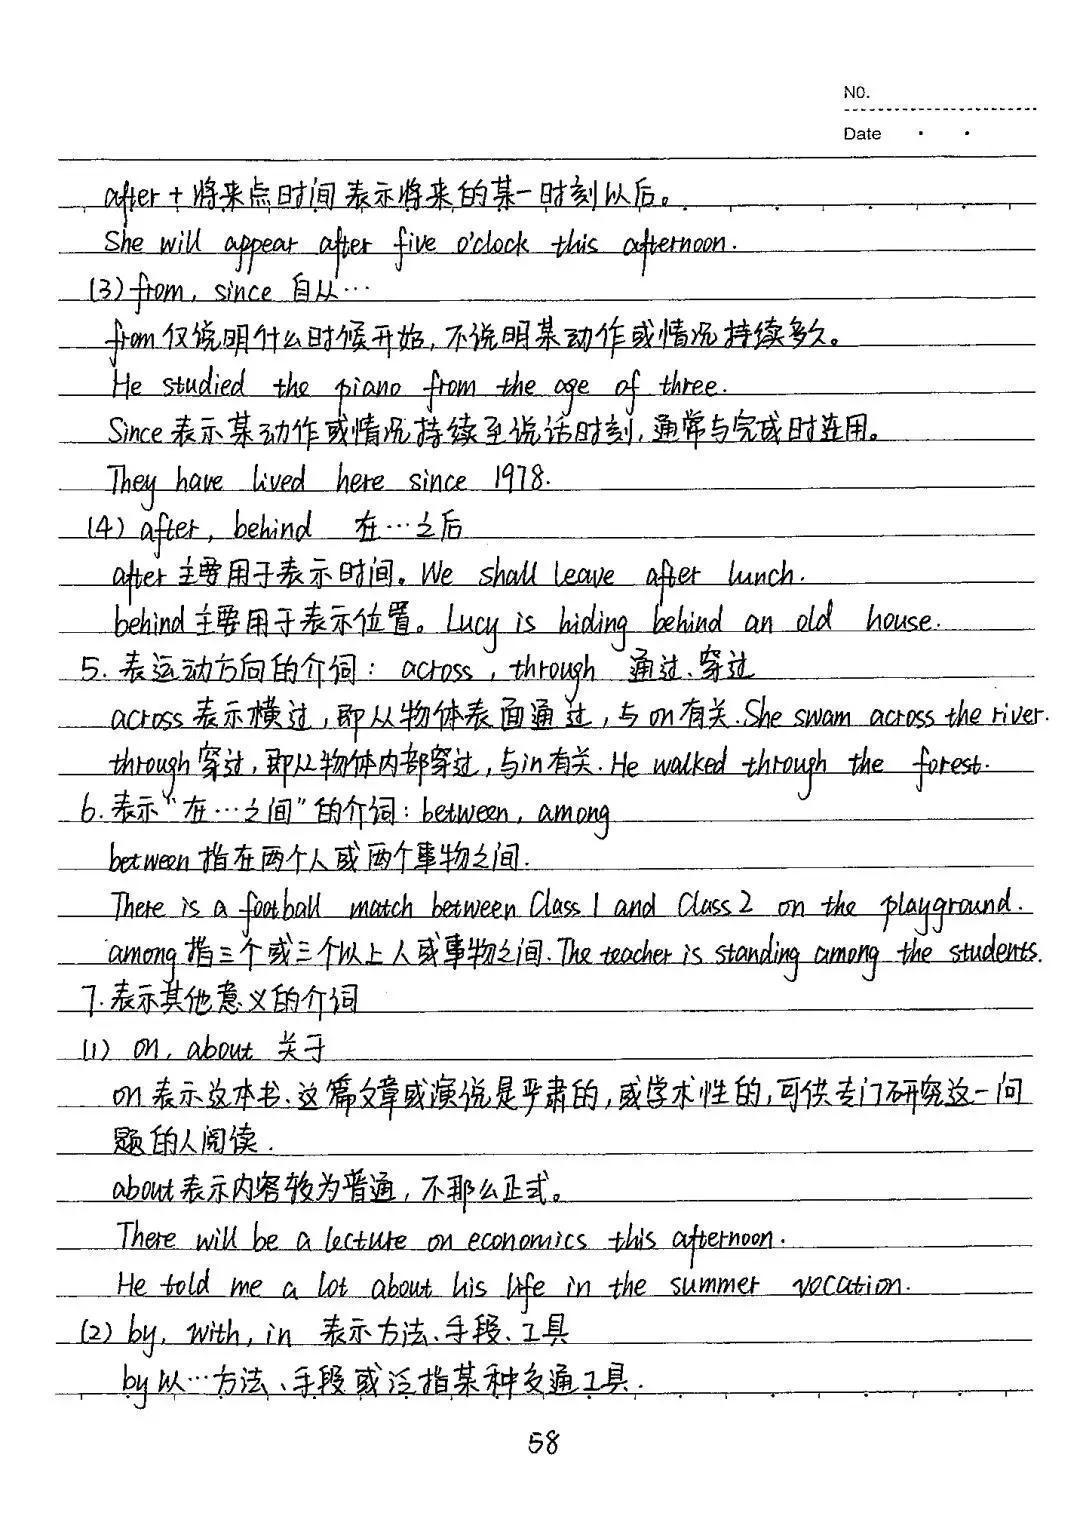 NO.
Date
after + 将来点时间 表示将来的某一时刻以后。
She will appear after five o'clock this afternoon.
(3) from, since 自从…
from 仅说明什么时候开始, 不说明某动作或情况持续多久。
He studied the piano from the age of three.
Since 表示某动作或情况持续至说话时刻, 通常与完成时连用。
They have lived here since 1978.
(4) after, behind 在…之后
after 主要用于表示时间。We shall leave after lunch.
behind 主要用于表示位置。Lucy is hiding behind an old house.
5. 表运动方向的介词: across, through 通过、穿过
across 表示横过, 即从物体表面通过, 与on有关. She swam across the river.
through 穿过, 即从物体内部穿过, 与in有关. He walked through the forest.
6. 表示“在…之间”的介词: between, among
between 指在两个人或两个事物之间.
There is a football match between Class 1 and Class 2 on the playground.
among 指三个或三个以上人或事物之间. The teacher is standing among the students.
7. 表示其他意义的介词
(1) on, about 关于
on 表示这本书、这篇文章或演说是严肃的, 或学术性的, 可供专门研究这一问
题的人阅读.
about 表示内容较为普通, 不那么正式。
There will be a lecture on economics this afternoon.
He told me a lot about his life in the summer vocation.
(2) by, with, in 表示方法、手段、工具
by 以…方法、手段或泛指某种交通工具.
58